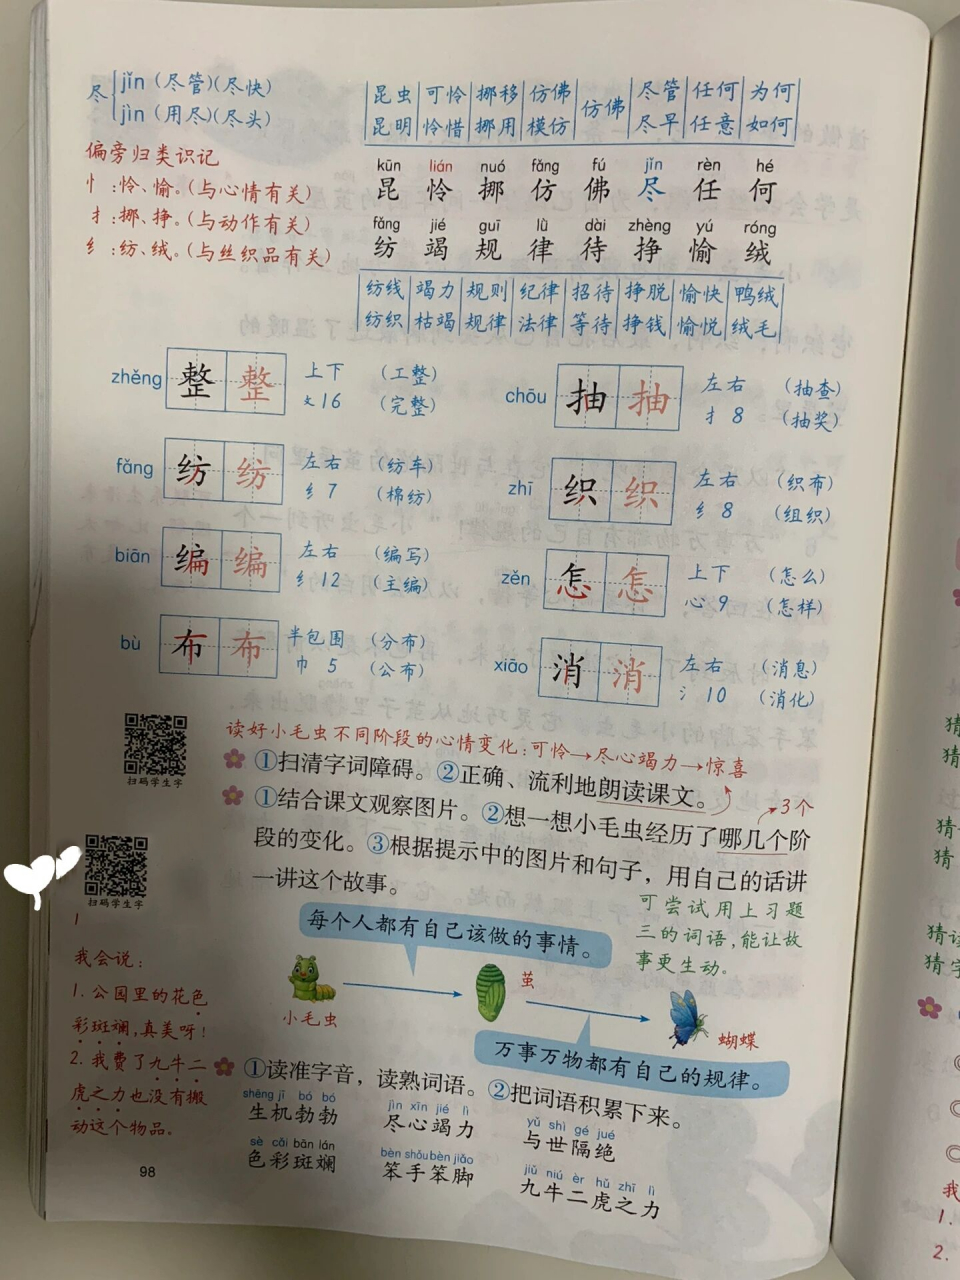 尽 jǐn (尽管)(尽快)
jìn (用尽)(尽头)
偏旁归类识记
忄:怜、愉。(与心情有关)
扌:挪、挣。(与动作有关)
纟:纺、绒。(与丝织品有关)
昆虫 可怜 挪移 仿佛 仿佛 尽管 任何 为何
昆明 怜惜 挪用 模仿 尽早 任意 如何
kūn lián nuó fǎng fú jǐn rèn hé
昆 怜 挪 仿 佛 尽 任 何
fǎng jié guī lǜ dài zhèng yú róng
纺 竭 规 律 待 挣 愉 绒
纺线 竭力 规则 纪律 招待 挣脱 愉快 鸭绒
纺织 枯竭 规律 法律 等待 挣钱 愉悦 绒毛
zhěng 整 整 上下 (工整)
攵16 (完整)
chōu 抽 抽 左右 (抽查)
扌8 (抽奖)
fǎng 纺 纺 左右 (纺车)
纟7 (棉纺)
zhī 织 织 左右 (织布)
纟8 (组织)
biān 编 编 左右 (编写)
纟12 (主编)
zěn 怎 怎 上下 (怎么)
心9 (怎样)
bù 布 布 半包围 (分布)
巾 5 (公布)
xiāo 消 消 左右 (消息)
氵10 (消化)
扫码学生字
读好小毛虫不同阶段的心情变化:可怜→尽心竭力→惊喜
①扫清字词障碍。②正确、流利地朗读课文。
3个
①结合课文观察图片。②想一想小毛虫经历了哪几个阶
段的变化。③根据提示中的图片和句子,用自己的话讲
一讲这个故事。
扫码学生字
可尝试用上习题
三的词语,能让故
事更生动。
每个人都有自己该做的事情。
小毛虫
茧
蝴蝶
万事万物都有自己的规律。
我会说:
1. 公园里的花色
彩斑斓,真美呀!
2. 我费了九牛二
虎之力也没有搬
动这个物品。
①读准字音,读熟词语。②把词语积累下来。
shēng jī bó bó jìn xīn jié lì yǔ shì gé jué
生机勃勃 尽心竭力 与世隔绝
sè cǎi bān lán bèn shǒu bèn jiǎo jiǔ niú èr hǔ zhī lì
色彩斑斓 笨手笨脚 九牛二虎之力
98
猜
猜
猜
猜
猜读
猜字
我
1.
2.